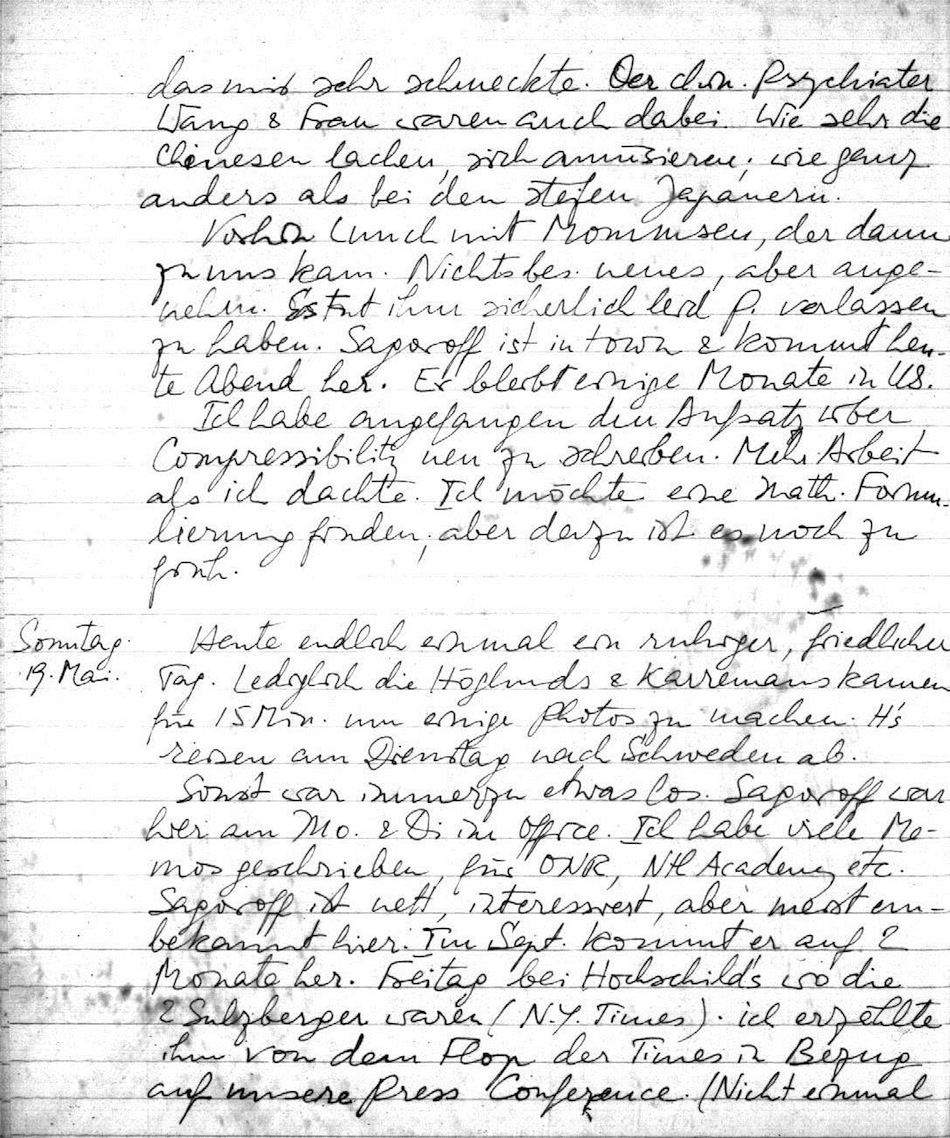 das mir sehr schmeckte. Der chin. Psychiater
Wang & Frau waren auch dabei. Wie sehr die
Chinesen lachen, sich amüsieren, wie ganz
anders als bei den steifen Japanern.
Vorhin Lunch mit Mommsen, der dann
zu uns kam. Nichts bes. neues, aber ange-
nehm. Es tut ihm sicherlich leid P. verlassen
zu haben. Sagoroff ist in town & kommt heu-
te Abend her. Er bleibt einige Monate in US.
Ich habe angefangen den Aufsatz über
Compressibility neu zu schreiben. Mehr Arbeit
als ich dachte. Ich möchte eine math. Formu-
lierung finden, aber dazu ist es noch zu
früh.
Sonntag
19. Mai.
Heute endlich einmal ein ruhiger, friedlicher
Tag. Lediglich die Höglunds & Karremans kamen
für 15 Min. um einige Photos zu machen. H's
reisen am Dienstag nach Schweden ab.
Sonst war immerzu etwas los. Sagoroff war
hier am Mo. & Di im Office. Ich habe viele Me-
mos geschrieben, für ONR, Academy etc.
Sagoroff ist nett, interessiert, aber meist un-
bekannt hier. Im Sept. kommt er auf 2
Monate her. Freitag bei Hochschild's wo die
2 Sulzberger waren (N.Y. Times). ich erzählte
ihm von dem Flop der Times in Bezug
auf unsere Press Conference. (Nicht einmal